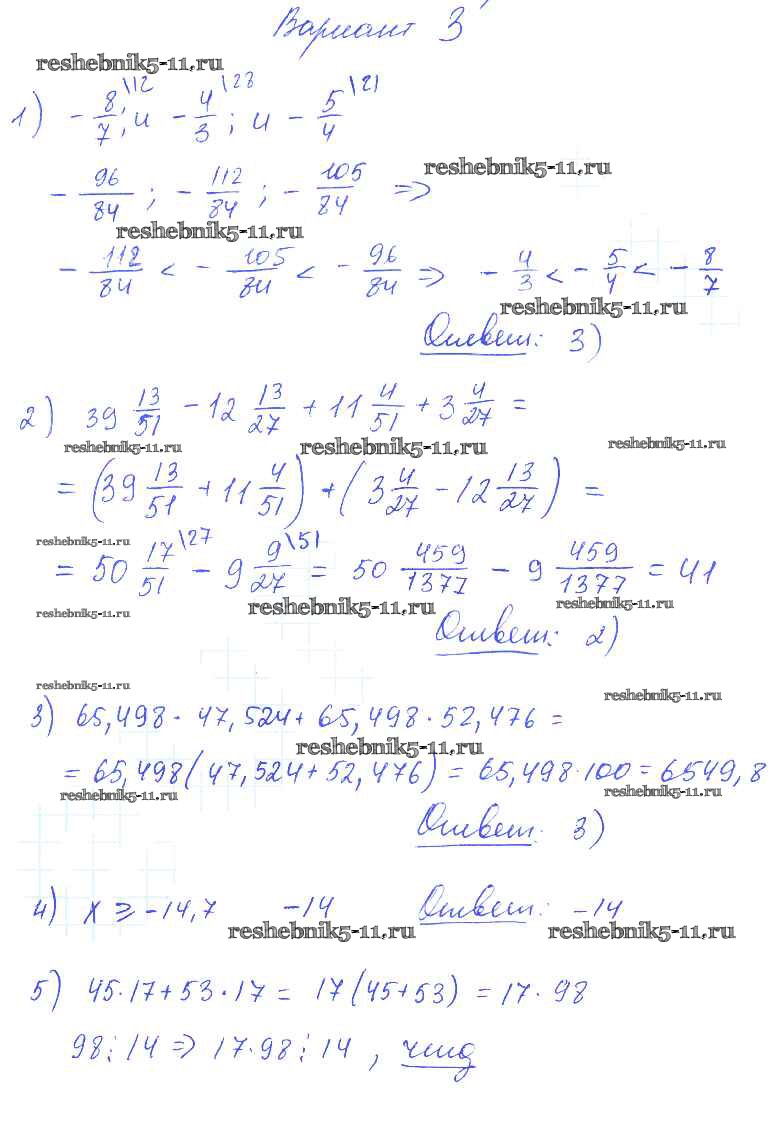 Вариант 3
reshebnik5-11.ru
1) - 8/7 \12; и - 4/3 \28; и - 5/4 \21
- 96/84; - 112/84; - 105/84 ⇒
reshebnik5-11.ru
reshebnik5-11.ru
- 112/84 < - 105/84 < - 96/84 ⇒ - 4/3 < - 5/4 < - 8/7
reshebnik5-11.ru
Ответ: 3)
2) 39 13/51 - 12 13/27 + 11 4/51 + 3 4/27 =
reshebnik5-11.ru reshebnik5-11.ru reshebnik5-11.ru
= (39 13/51 + 11 4/51) + (3 4/27 - 12 13/27) =
reshebnik5-11.ru
= 50 17/51 \27 - 9 9/27 \51 = 50 459/1377 - 9 459/1377 = 41
reshebnik5-11.ru reshebnik5-11.ru reshebnik5-11.ru
Ответ: 2)
reshebnik5-11.ru reshebnik5-11.ru
3) 65,498 · 47,524 + 65,498 · 52,476 =
reshebnik5-11.ru
= 65,498 (47,524 + 52,476) = 65,498 · 100 = 6549,8
reshebnik5-11.ru reshebnik5-11.ru
Ответ: 3)
4) x ⩾ -14,7 -14 Ответ: -14
reshebnik5-11.ru reshebnik5-11.ru
5) 45·17 + 53·17 = 17(45+53) = 17·98
98⋮14 ⇒ 17·98⋮14, чтд